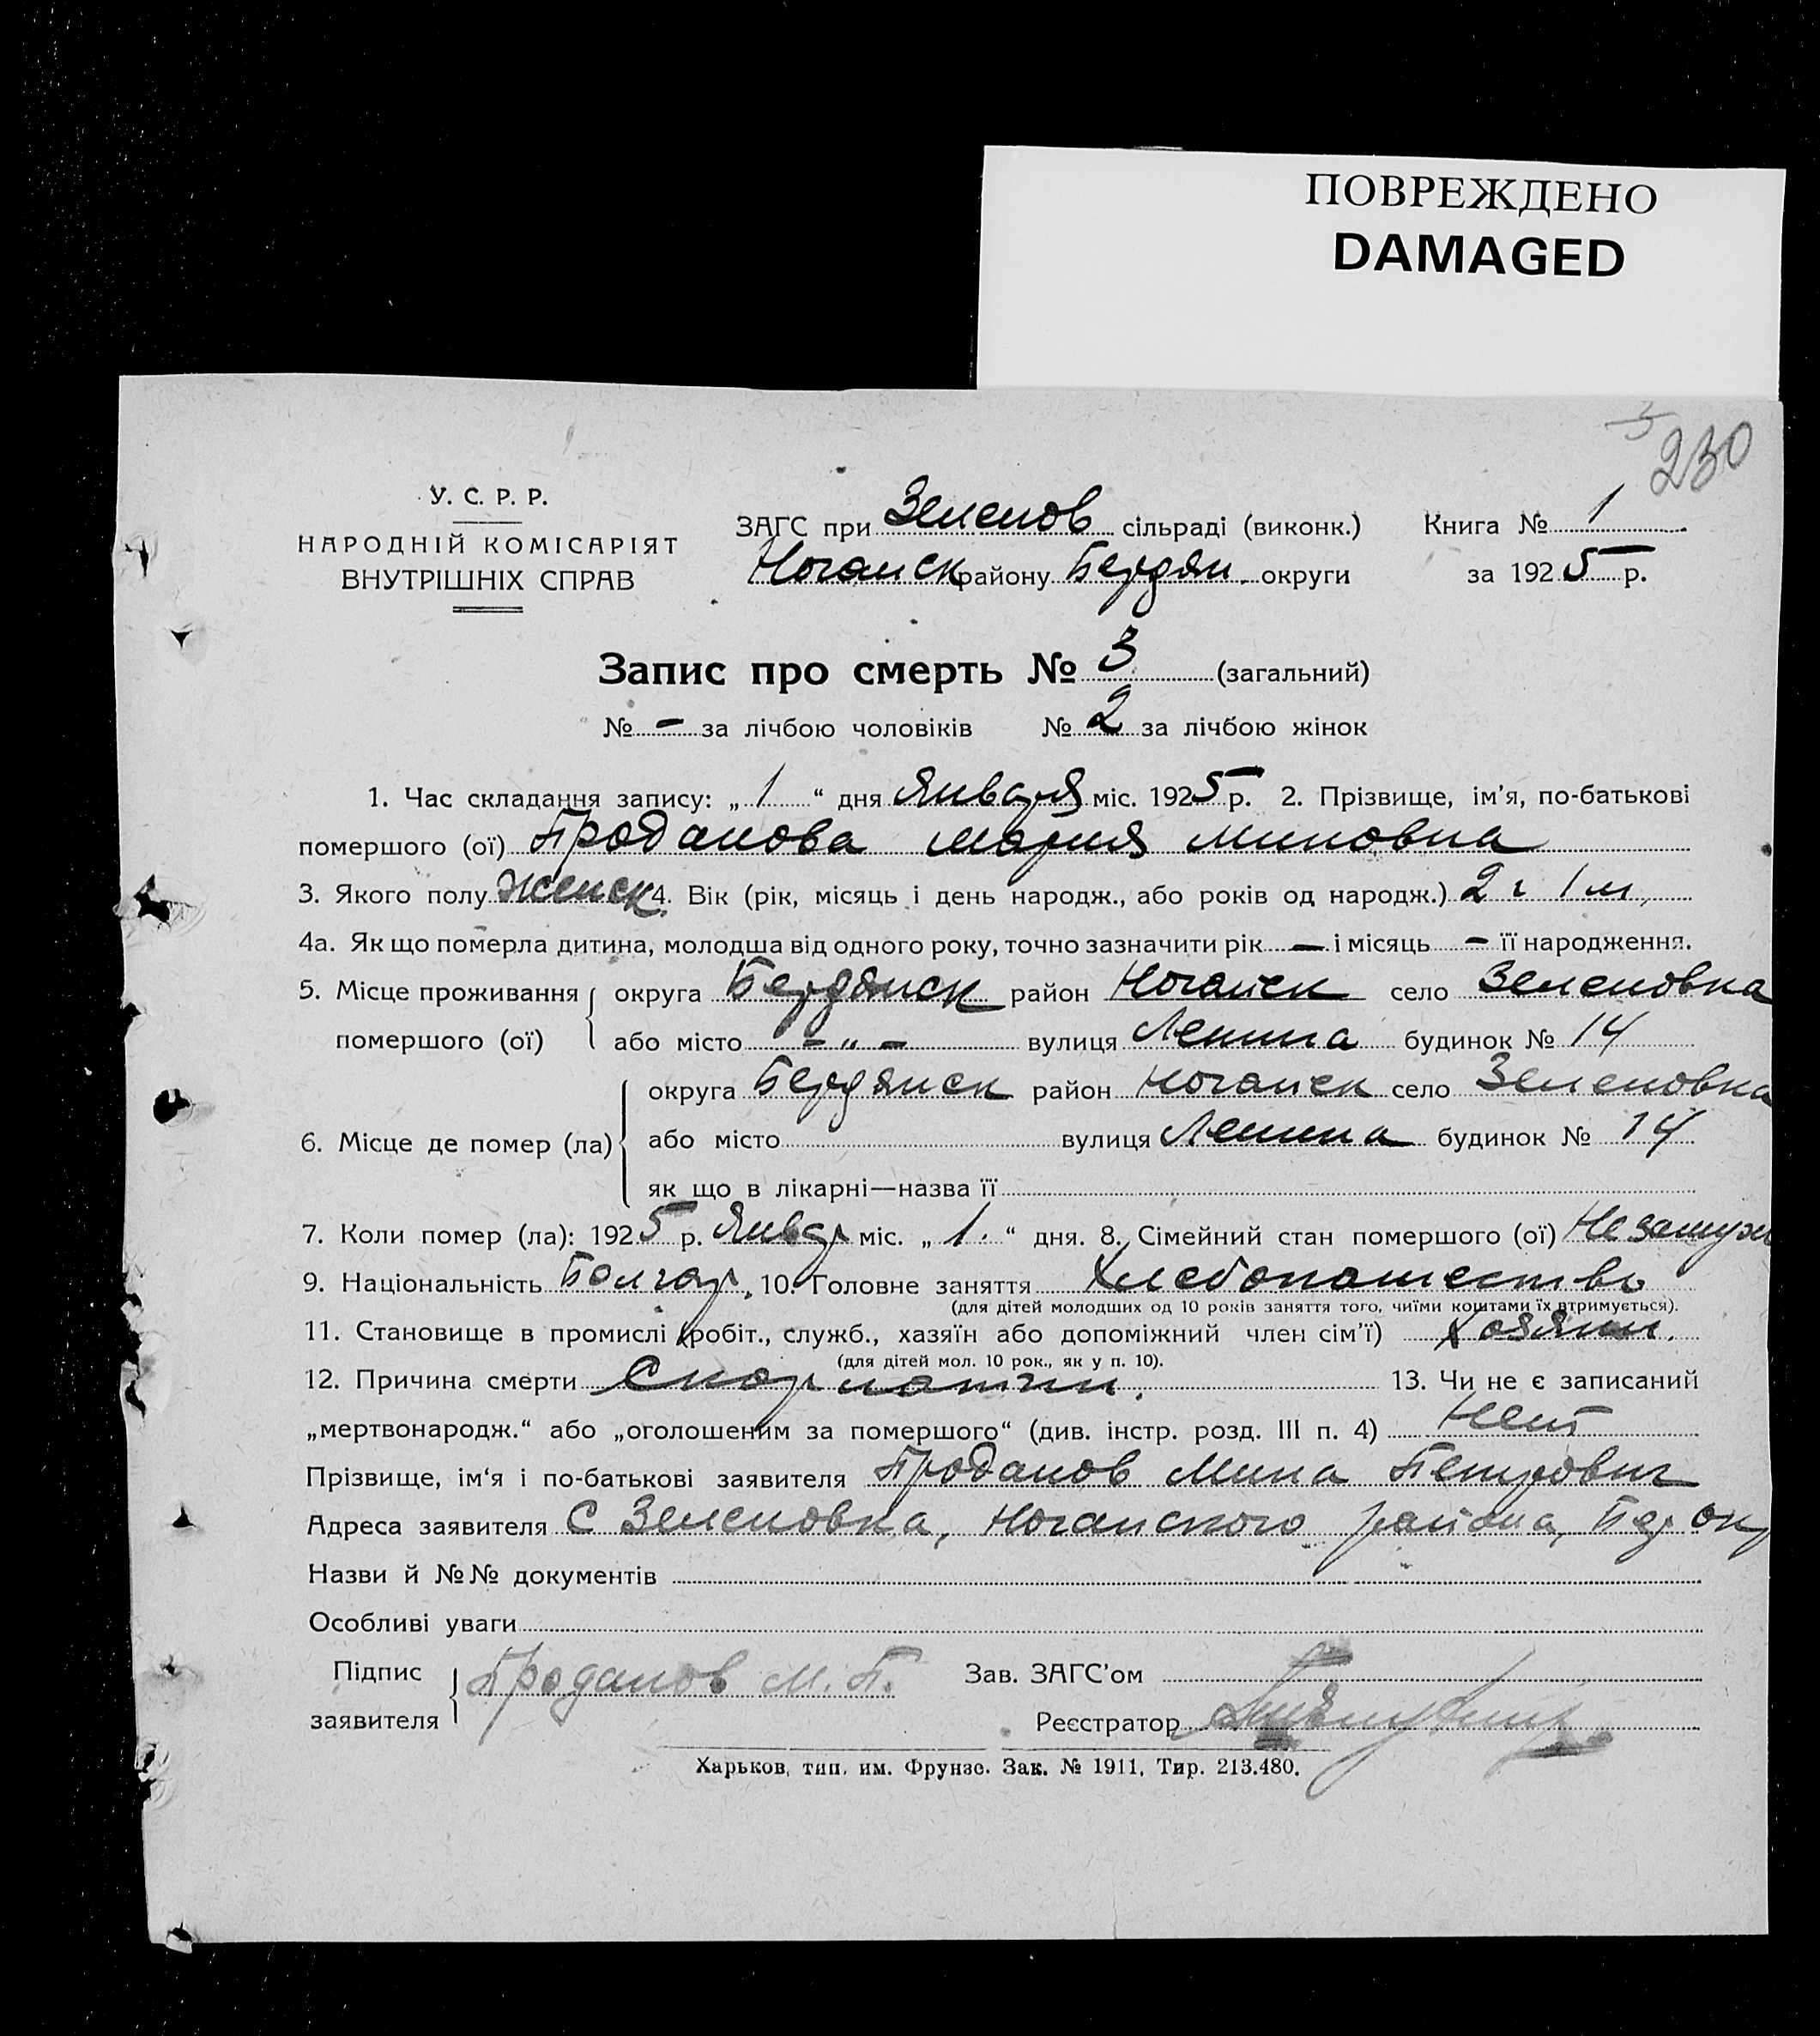 ПОВРЕЖДЕНО
DAMAGED
230
У. С. Р. Р.
НАРОДНІЙ КОМІСАРІЯТ
ВНУТРІШНІХ СПРАВ
ЗАГС при Зеленов сільраді (виконк.)
Ногайск району Бердян. округи
Книга № 1
за 1925 р.
Запис про смерть № 3 (загальний)
№ - за лічбою чоловіків № 2 за лічбою жінок
1. Час складання запису: „ 1 “ дня Января міс. 1925 р. 2. Прізвище, ім'я, по-батькові
помершого (ої) Проданова Мария Миновна
3. Якого полу Женск 4. Вік (рік, місяць і день народж., або років од народж.) 2 г 1 м.
4а. Як що померла дитина, молодша від одного року, точно зазначити рік - і місяць - її народження.
5. Місце проживання округа Бердянск район Ногайск село Зеленовка
помершого (ої) або місто - „ - вулиця Ленина будинок № 14
округа Бердянск район Ногайск село Зеленовка
6. Місце де помер (ла) або місто вулиця Ленина будинок № 14
як що в лікарні—назва її
7. Коли помер (ла): 1925 р. Январ міс. „ 1. “ дня. 8. Сімейний стан помершого (ої) Незамуж
9. Національність Болгар. 10. Головне заняття Хлебопашество
(для дітей молодших од 10 років заняття того, чиїми коштами їх втримується).
11. Становище в промислі (робіт., служб., хазяїн або допоміжний член сім'ї) Хозяин.
(для дітей мол. 10 рок., як у п. 10).
12. Причина смерти Скарлатин. 13. Чи не є записаний
„мертвонародж.“ або „оголошеним за помершого“ (див. інстр. розд. III п. 4) Нет
Прізвище, ім‘я і по-батькові заявителя Проданов Мина Петрович
Адреса заявителя С Зеленовка, Ногайского района, Бер окр
Назви й №№ документів
Особливі уваги
Підпис заявителя Проданов М. П.
Зав. ЗАГС'ом
Реєстратор
Харьков, тип. им. Фрунзе. Зак. № 1911, Тир. 213.480.